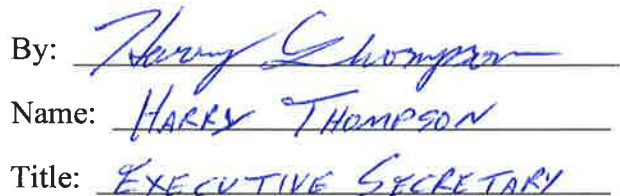 By: Harry Thompson
Name: HARRY THOMPSON
Title: EXECUTIVE SECRETARY